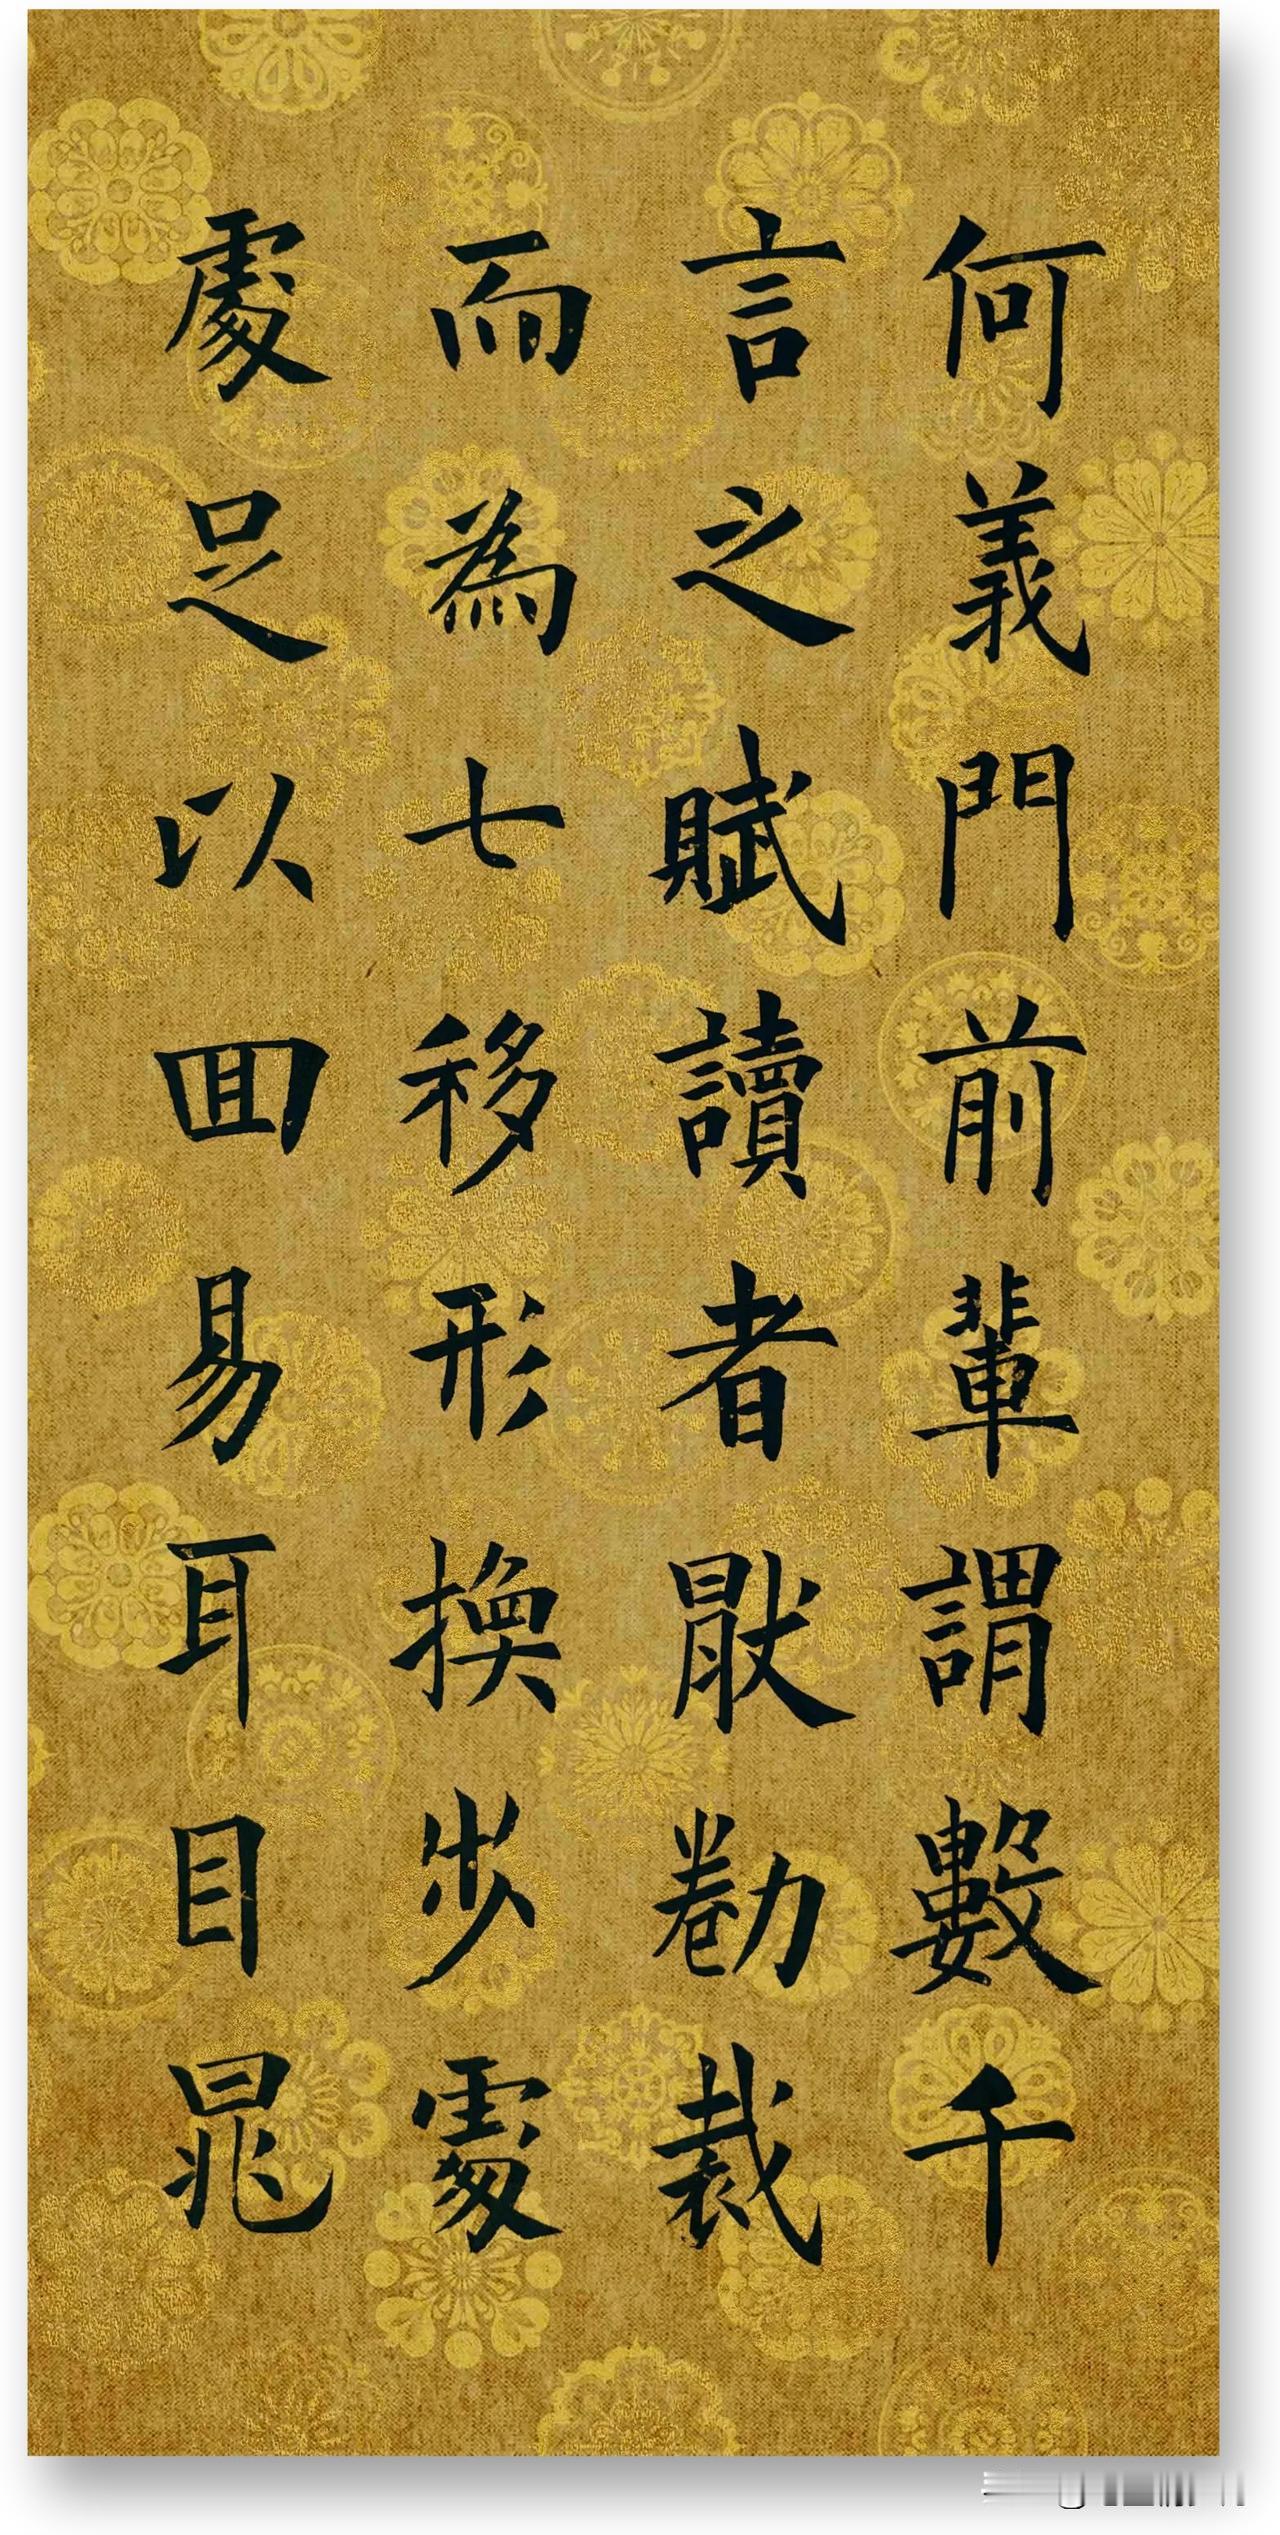 何義門前輩謂數千
言之賦讀者厭勌裁
而為七移形換步處
處足以回易耳目晁